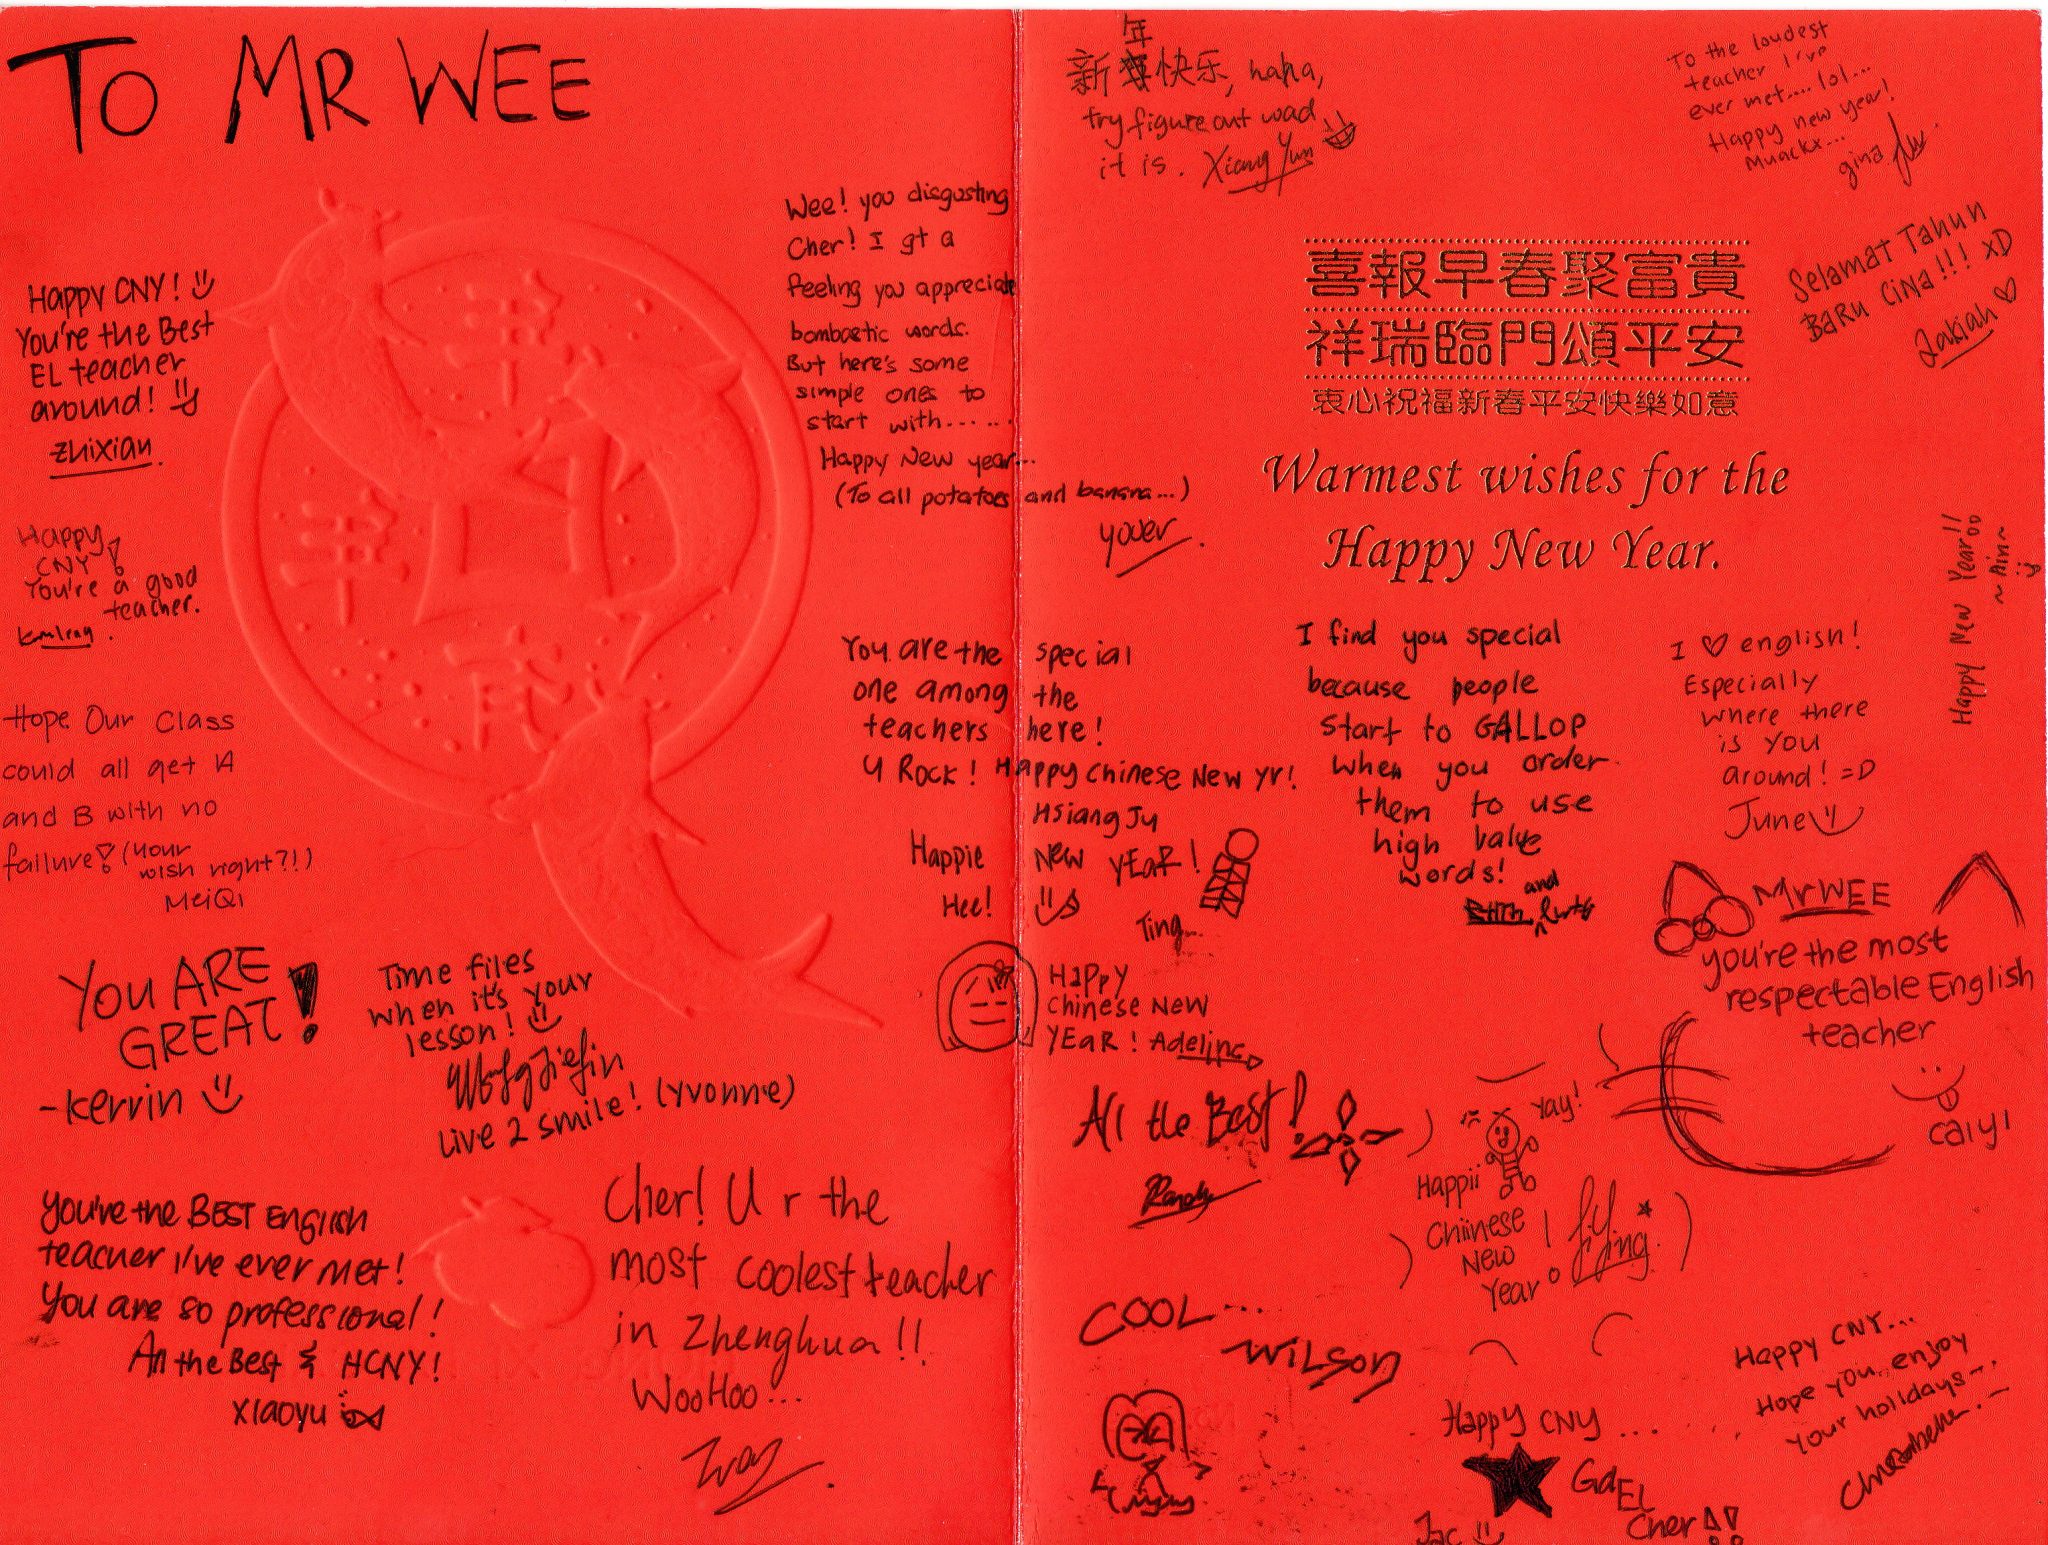 TO MR WEE
Happy CNY!
You're the Best
EL teacher
around!
zhixian
Happy
CNY!
You're a good
teacher.
Hope Our Class
could all get A
and B with no
failure! (your
wish right?!)
MeiQi
YOU ARE
GREAT!
-Kerrin
Time flies
when it's your
lesson!
Live 2 smile! (Yvonne)
You're the BEST English
teacher I've ever met!
You are so professional!
All the Best & HCNY!
xiaoyu
Cher! U r the
most coolest teacher
in Zhenghua!!
WooHoo...
Wee! you disgusting
Cher! I gt a
feeling you appreciate
bombastic words.
But here's some
simple ones to
start with......
Happy New year...
(To all potatoes and banana...)
You are the special
one among the
teachers here!
U ROCK! Happy Chinese New Yr!
Hsiang Ju
Happie New YEAR!
Hee!
Ting...
Happy
Chinese New
YEAR! Adeline
新年快乐, haha,
try figure out wad
it is. Xiang Yun
To the loudest
teacher I've
ever met.... lol...
Happy new year!
Muackx...
gina
喜報早春聚富貴
祥瑞臨門頌平安
衷心祝福新春平安快樂如意
Warmest wishes for the
Happy New Year.
Selamat Tahun
Baru Cina!!! XD
Zakiah
Happy New Year!!
~Ain~
I find you special
because people
start to GALLOP
when you order
them to use
high value
words!
and
I ♡ english!
Especially
where there
is you
around! =D
June
Mr WEE
you're the most
respectable English
teacher
caiyi
All the Best!
Randy
Yay!
Happii
Chiinese
New
Year!
COOL....
WILSON
Happy CNY.....
GaEL
Cher!!
Jac
Happy CNY...
Hope you enjoy
your holidays~..